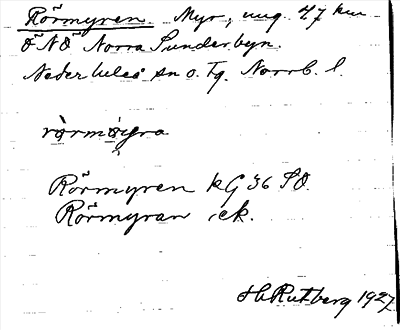 Rörmyren. Myr, ung. 4,7 km
ÖNÖ Norra Sunderbyn.
Nederluleå sn o. tg. Norrb. l.
Rörmyren kG 36 SO
Rörmyran ek.
H Rutberg 1927